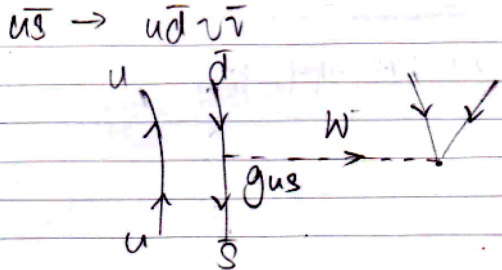 us̄ → ud̄ νν̄
u d̄
W
gus
u s̄